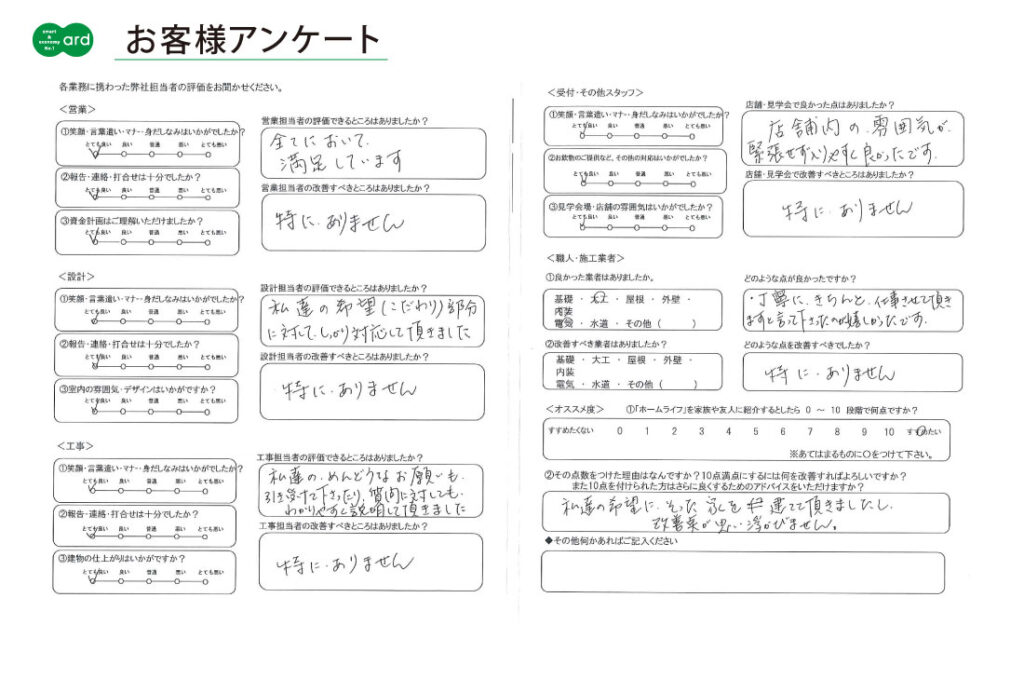 smart
&
economy
No.1
ard
お客様アンケート
各業務に携わった弊社担当者の評価をお聞かせください。
＜営業＞
①笑顔・言葉遣い・マナー・身だしなみはいかがでしたか？
とても良い 良い 普通 悪い とても悪い
②報告・連絡・打合せは十分でしたか？
とても良い 良い 普通 悪い とても悪い
③資金計画はご理解いただけましたか？
とても良い 良い 普通 悪い とても悪い
営業担当者の評価できるところはありましたか？
全てにおいて、
満足しています
営業担当者の改善すべきところはありましたか？
特に、ありません
＜設計＞
①笑顔・言葉遣い・マナー・身だしなみはいかがでしたか？
とても良い 良い 普通 悪い とても悪い
②報告・連絡・打合せは十分でしたか？
とても良い 良い 普通 悪い とても悪い
③室内の雰囲気・デザインはいかがですか？
とても良い 良い 普通 悪い とても悪い
設計担当者の評価できるところはありましたか？
私達の希望(こだわり)部分
に対して、しっかり対応して頂きました
設計担当者の改善すべきところはありましたか？
特に、ありません
＜工事＞
①笑顔・言葉遣い・マナー・身だしなみはいかがでしたか？
とても良い 良い 普通 悪い とても悪い
②報告・連絡・打合せは十分でしたか？
とても良い 良い 普通 悪い とても悪い
③建物の仕上がりはいかがですか？
とても良い 良い 普通 悪い とても悪い
工事担当者の評価できるところはありましたか？
私達の、めんどうなお願いも、
引き受けて下さったり、質問に対しても、
わかりやすく説明して頂きました
工事担当者の改善すべきところはありましたか？
特に、ありません
＜受付・その他スタッフ＞
①笑顔・言葉遣い・マナー・身だしなみはいかがでしたか？
とても良い 良い 普通 悪い とても悪い
②お飲物のご提供など、その他の対応はいかがでしたか？
とても良い 良い 普通 悪い とても悪い
③見学会場・店舗の雰囲気はいかがでしたか？
とても良い 良い 普通 悪い とても悪い
店舗・見学会で良かった点はありましたか？
店舗内の、雰囲気が、
緊張せず入りやすく良かったです。
店舗・見学会で改善すべきところはありましたか？
特に、ありません
＜職人・施工業者＞
①良かった業者はありましたか。
基礎 ・ 大工 ・ 屋根 ・ 外壁 ・
内装
電気 ・ 水道 ・ その他（ ）
どのような点が良かったですか？
・丁寧に、きちんと、仕事させて頂き
ますと言って下さったのが嬉しかったです。
②改善すべき業者はありましたか？
基礎 ・ 大工 ・ 屋根 ・ 外壁 ・
内装
電気 ・ 水道 ・ その他（ ）
どのような点を改善すべきでしたか？
特に、ありません
＜オススメ度＞ ①「ホームライフ」を家族や友人に紹介するとしたら 0 ～ 10 段階で何点ですか？
すすめたくない 0 1 2 3 4 5 6 7 8 9 10 すすめたい
※あてはまるものに○をつけて下さい。
②その点数をつけた理由はなんですか？10点満点にするには何を改善すればよろしいですか？
また10点を付けられた方はさらに良くするためのアドバイスをいただけますか？
私達の希望に、そった 家を 建てて頂きましたし、
改善案が思い浮かびません。
◆その他何かあればご記入ください